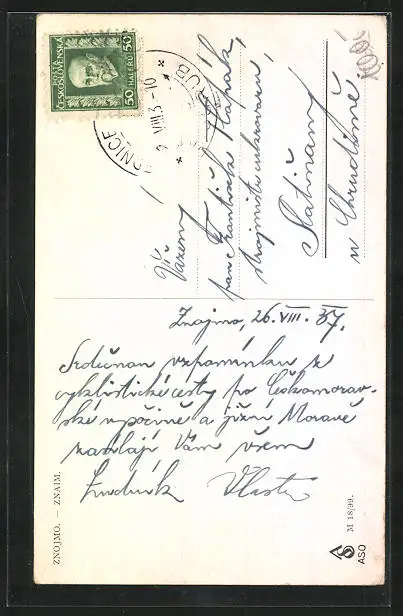 POSTA
ČESKOSLOVENSKÁ
50 HALÉŘŮ 50
VIII.3 -10
Vážený
pan František
strojmistr cukrovaru,
Slatiňany
u Chrudimě
Znojmo, 26. VIII. 37.
Srdečnou vzpomínku z
cyklistické cesty po Českomorav-
ské vysočině a jižní Moravě
zasílají Vám všem
Ludvík Vlasta
ZNOJMO. — ZNAIM.
M 18/99.
ASO